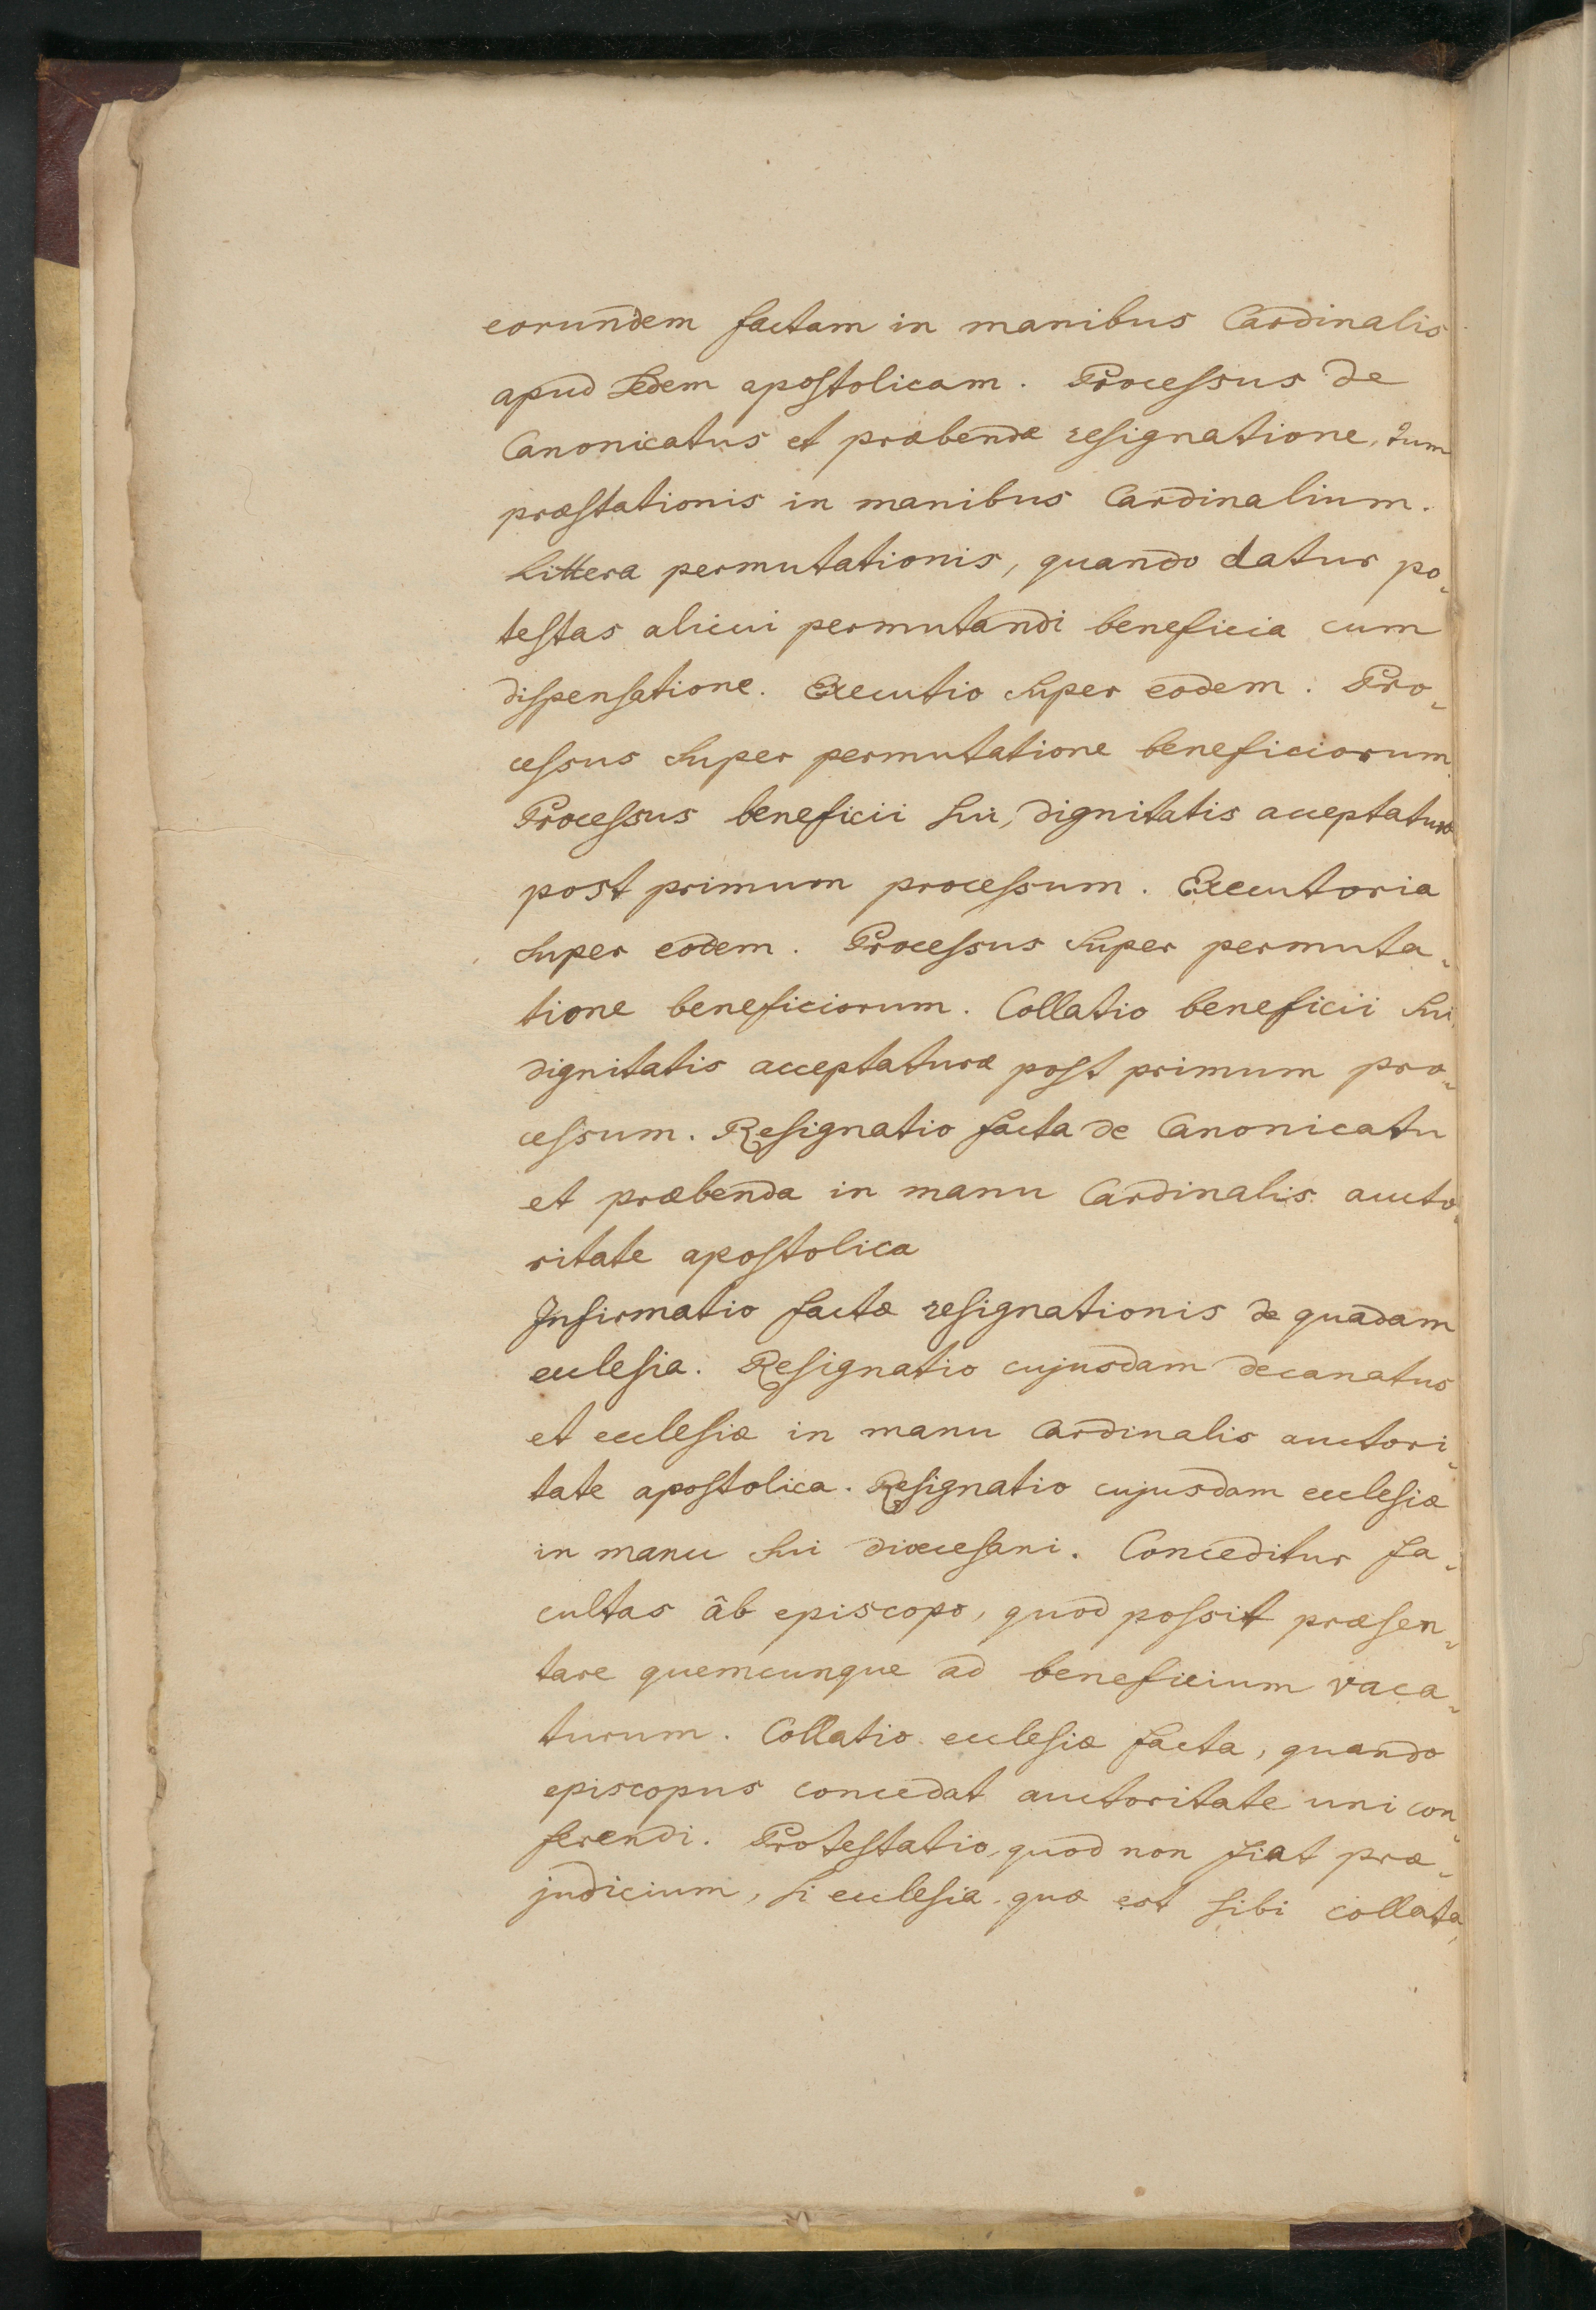 eorundem factam in manibus Cardinalis
apud Sedem apostolicam. Processus de
Canonicatus et præbendæ resignatione, tum
præstationis in manibus Cardinalium.
Littera permutationis, quando datur po-
testas alicui permutandi beneficia cum
dispensatione. Executio super eodem. Pro-
cessus super permutatione beneficiorum.
Processus beneficii sui, dignitatis acceptaturæ
post primum processum. Executoria
super eodem. Processus super permuta-
tione beneficiorum. Collatio beneficii sui,
dignitatis acceptaturæ post primum pro-
cessum. Resignatio facta de Canonicatu
et præbenda in manu Cardinalis aucto-
ritate apostolica
Infirmatio factæ resignationis de quadam
ecclesia. Resignatio cujusdam decanatus
et ecclesiæ in manu Cardinalis auctori-
tate apostolica. Resignatio cujusdam ecclesiæ
in manu sui diœcesani. Conceditur fa-
cultas âb episcopo, quod possit præsen-
tare quemcunque ad beneficium vaca-
turum. Collatio ecclesiæ facta, quando
episcopus concedat auctoritate uni con-
ferendi. Protestatio, quod non fiat præ-
judicium, si ecclesia quæ est sibi collata,